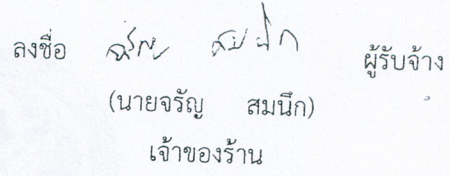 ลงชื่อ จรัญ สมนึก ผู้รับจ้าง
(นายจรัญ สมนึก)
เจ้าของร้าน